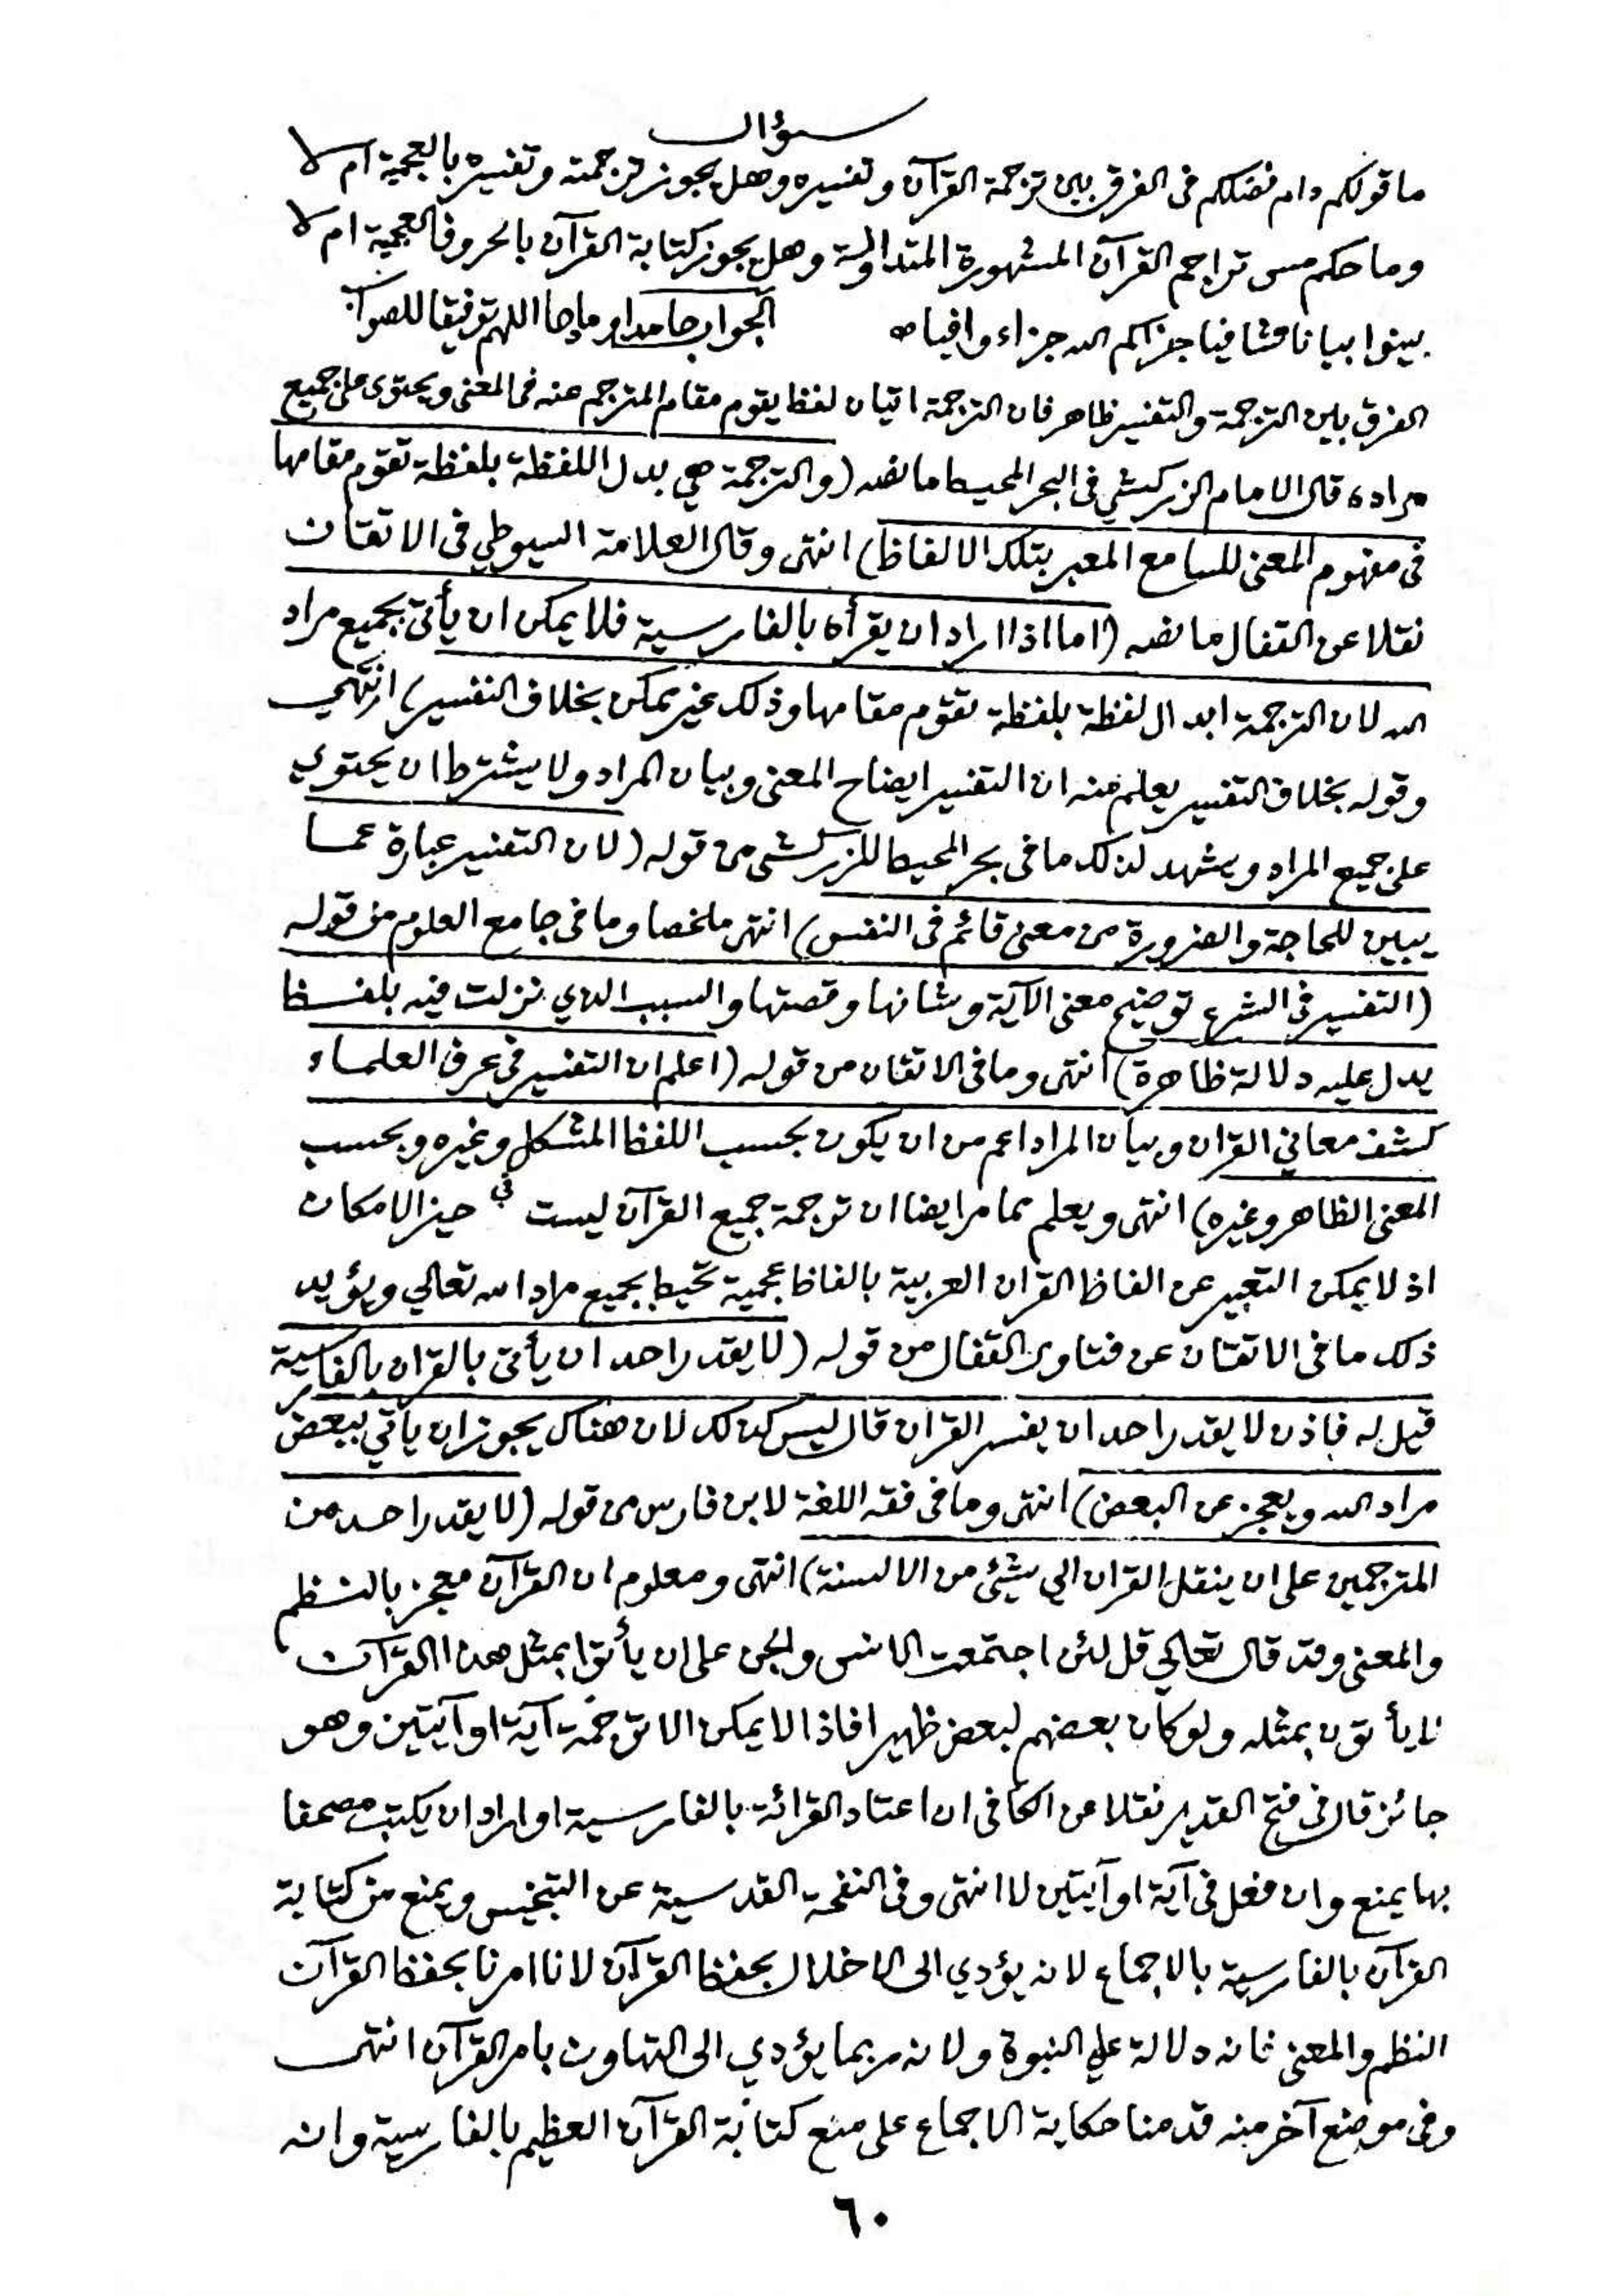 سؤال
ما قولكم دام فضلكم فى الفرق بين ترجمة القرآن وتفسيره وهل يجوز ترجمته وتفسيره بالعجمية ام لا
وما حكم مس تراجم القرآن المشهورة المتداولة وهل يجوز كتابة القرآن بالحروف العجمية ام لا
بينوا بيانا شافيا جزاكم الله جزاء وافيا الجواب حامدا و مادحا اللهم توفيقا للصواب
الفرق بين الترجمة والتفسير ظاهر فان الترجمة اتيان لفظ يقوم مقام المترجم عنه فى المعنى ويحتوى على جميع
مراده قال الامام الزركشي فى البحر المحيط ما نصه (والترجمة هي بدل اللفظة بلفظة تقوم مقامها
فى مفهوم المعنى للسامع المعبر بتلك الالفاظ) انتهى وقال العلامة السيوطي فى الاتقان
نقلا عن القفال ما نصه (اما اذا اراد ان يقرأه بالفارسية فلا يمكن ان يأتى بجميع مراد
الله لان الترجمة ابدال لفظة بلفظة تقوم مقامها وذلك غير ممكن بخلاف التفسير) انتهي
وقوله بخلاف التفسير يعلم منه ان التفسير ايضاح المعنى وبيان المراد ولا يشترط ان يحتوي
على جميع المراد ويشهد لذلك ما فى بحر المحيط للزركشى من قوله (لان التفسير عبارة عما
يبين للحاجة والضرورة من معنى قائم فى النفس) انتهى ملخصا وما فى جامع العلوم من قوله
(التفسير فى الشرع توضيح معنى الآية وشانها وقصتها والسبب الذي نزلت فيه بلفظ
يدل عليه دلالة ظاهرة) انتهى وما فى الاتقان من قوله (اعلم ان التفسير فى عرف العلماء
كشف معاني القران وبيان المراد اعم من ان يكون بحسب اللفظ المشكل وغيره وبحسب
المعنى الظاهر وغيره) انتهى ويعلم مما مر ايضا ان ترجمة جميع القرآن ليست في حيز الامكان
اذ لا يمكن التعبير عن الفاظ القران العربية بالفاظ عجمية تحيط بجميع مراد الله تعالي ويؤيد
ذلك ما فى الاتقان عن فتاوى القفال من قوله (لا يقدر احد ان يأتى بالقران بالفارسية
قيل له فاذن لا يقدر احد ان يفسر القران قال ليس كذلك لان هناك يجوز ان ياتي ببعض
مراد الله ويعجز عن البعض) انتهى وما فى فقه اللغة لابن فارس من قوله (لا يقدر احد من
المترجمين على ان ينقل القران الي شئ من الالسنة) انتهى ومعلوم ان القرآن معجز بالنظم
والمعنى وقد قال تعالي قل لئن اجتمعت الانس والجن على ان يأتوا بمثل هذا القرآن
لا يأتون بمثله ولو كان بعضهم لبعض ظهيرا فاذا لا يمكن الا ترجمة آية او آيتين وهو
جائز قال فى فتح القدير نقلا عن الكافى ان اعتاد القرائة بالفارسية او اراد ان يكتب مصحفا
بها يمنع وان فعل فى آية او آيتين لا انتهى وفى النفحة القدسية عن التجنيس ويمنع من كتابة
القرآن بالفارسية بالاجماع لانه يؤدي الى الاخلال بحفظ القرآن لانا امرنا بحفظ القرآن
النظم والمعنى فانه دلالة على النبوة ولانه ربما يؤدي الى التهاون بامر القرآن انتهى
وفى موضع آخر منه قدمنا حكاية الاجماع على منع كتابة القرآن العظيم بالفارسية وانه
٦٠